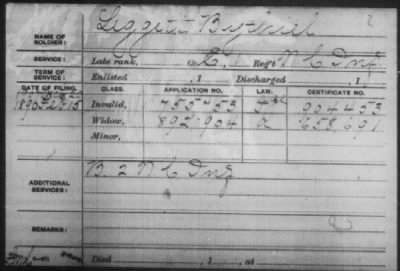 NAME OF SOLDIER: Leggett
SERVICE: Late rank, Co. E, Reg't N C Inf
TERM OF SERVICE: Enlisted , 1 Discharged , 1
DATE OF FILING. CLASS. APPLICATION NO. LAW. CERTIFICATE NO.
Invalid, 904453
Widow, 892.904 658.691
Minor,
ADDITIONAL SERVICES: B. 2 N C Inf
REMARKS:
Died , 1 , at